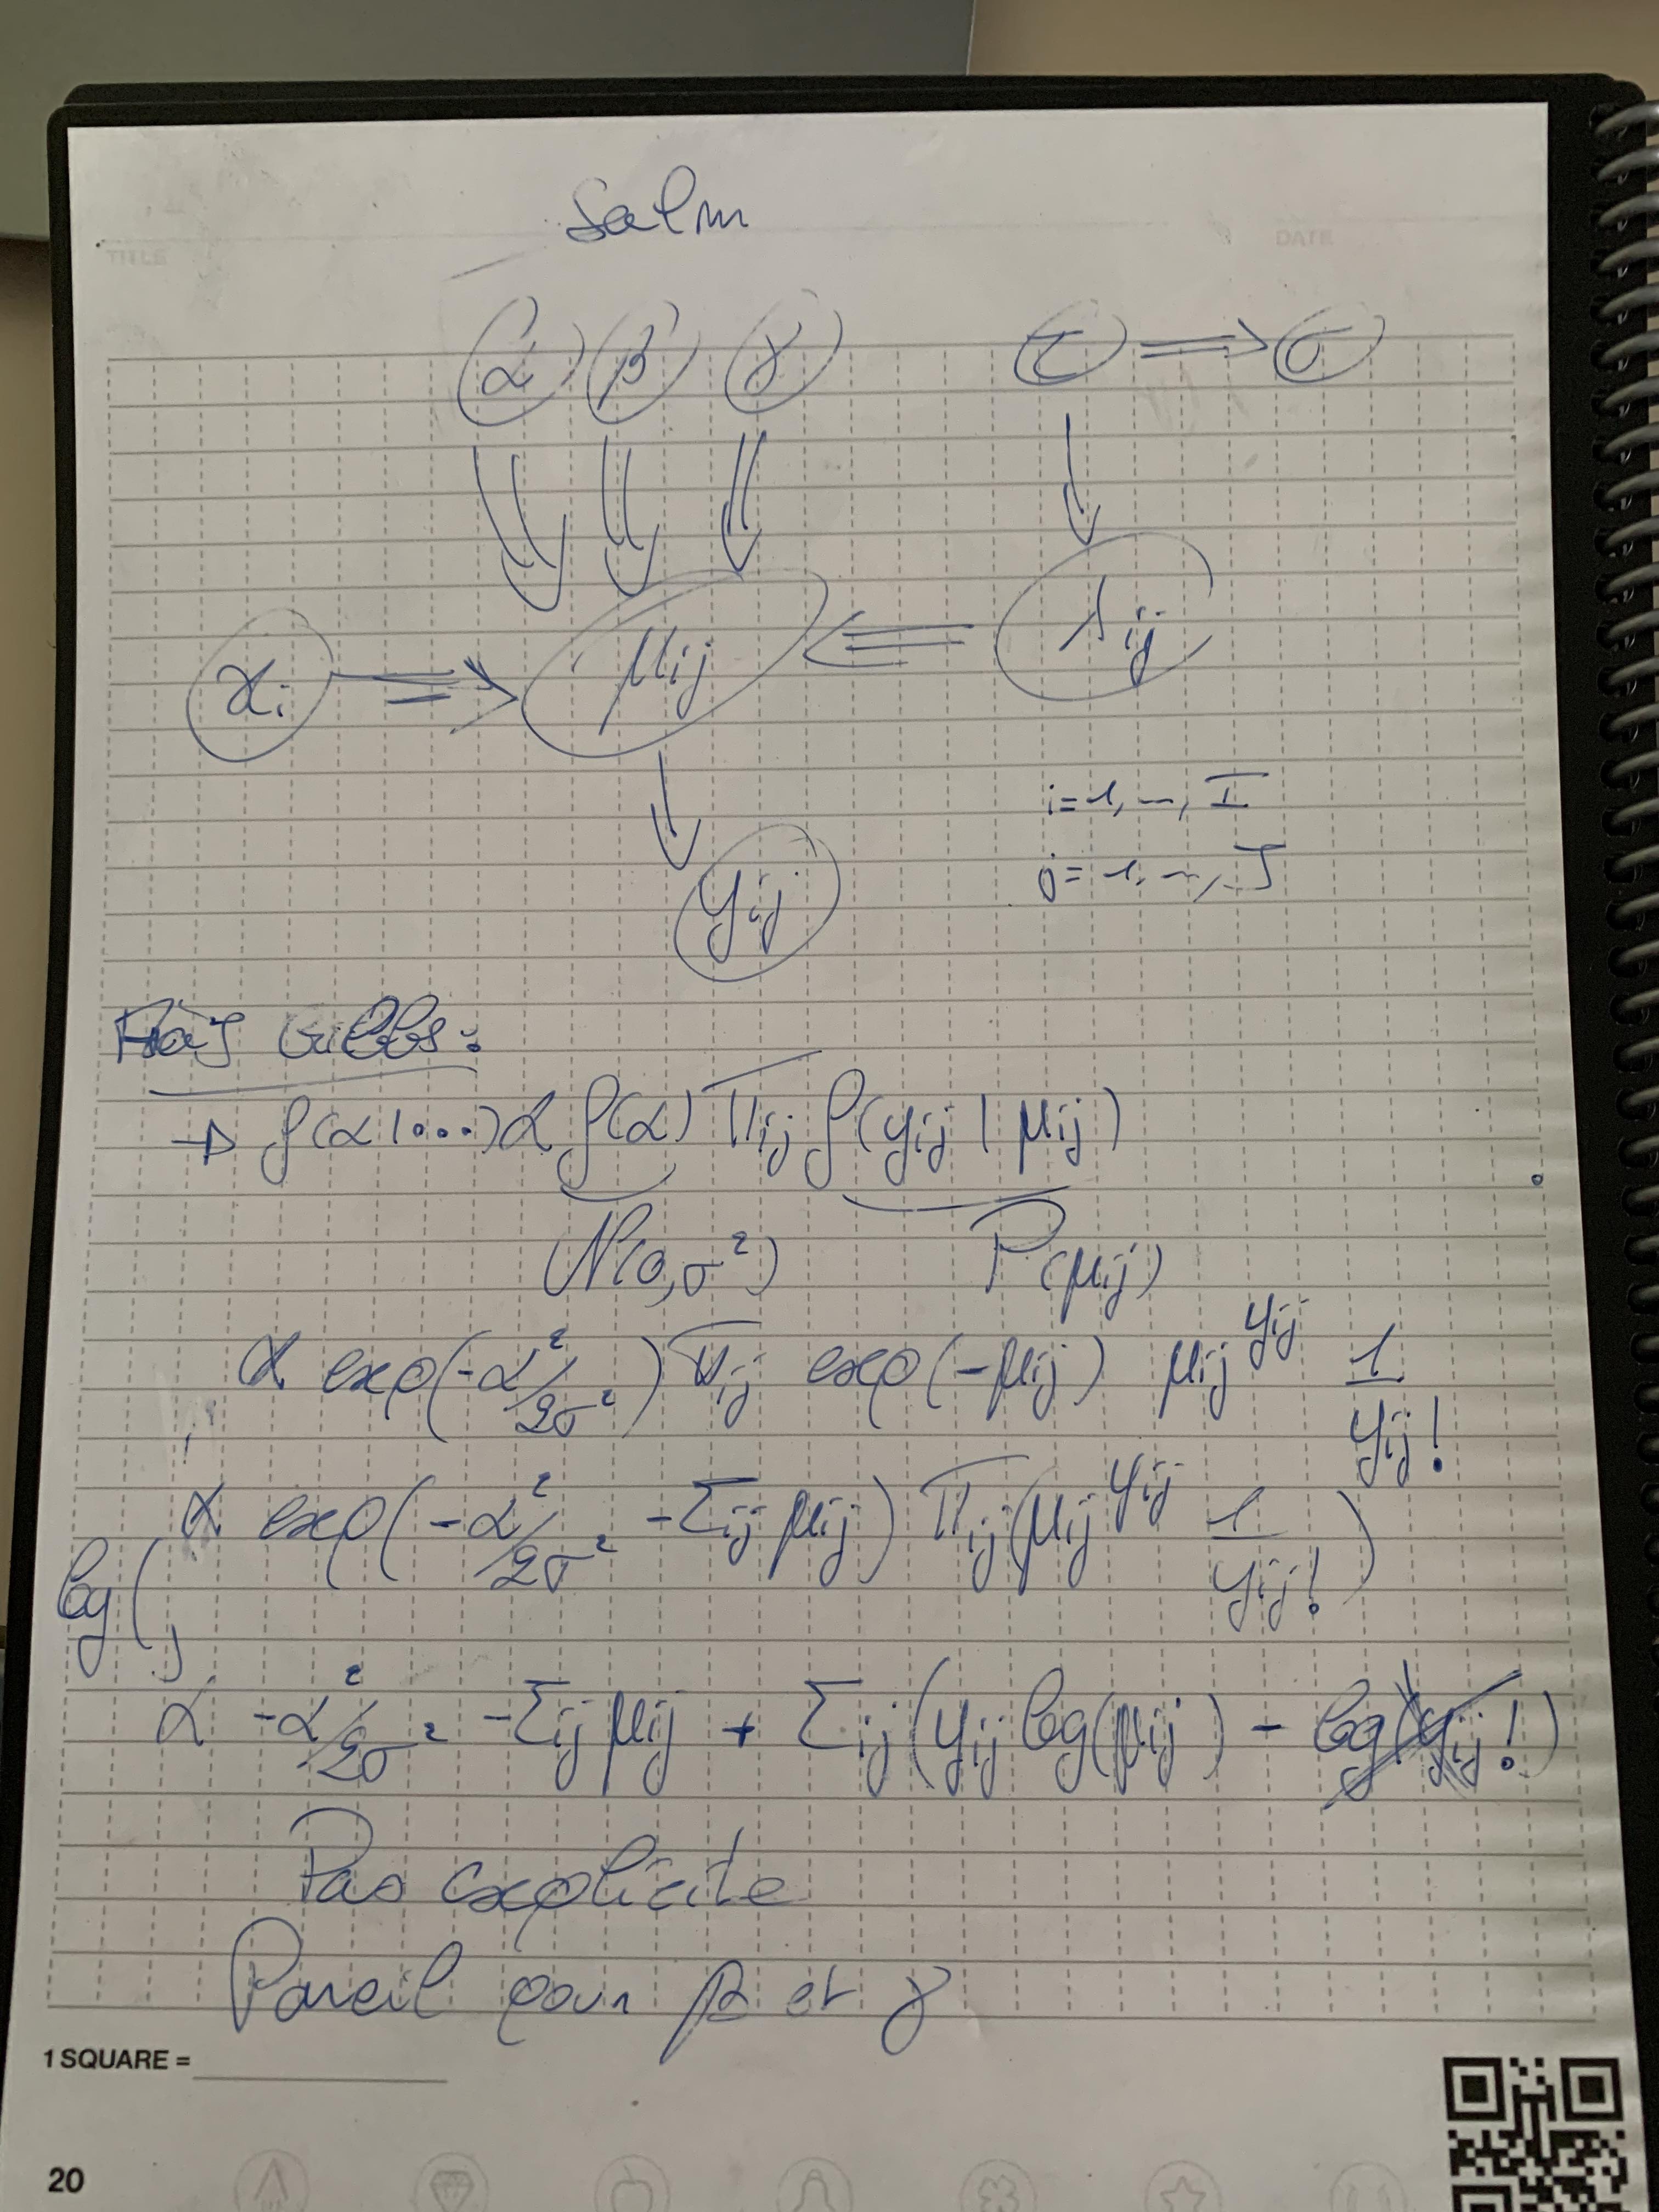 Salm
TITLE
DATE
α β γ τ ⇒ σ
xi ⇒ μij ⇐ λij
i=1, ..., I
j=1, ..., J
yij
Gibbs:
→ f(α|...) ∝ f(α) Πij f(yij | μij)
N(0,σ²) P(μij)
∝ exp(-α²/2σ²) Πij exp(-μij) μij^yij 1/yij!
∝ exp(-α²/2σ² - Σij μij) Πij(μij^yij 1/yij!)
log(
∝ -α²/2σ² - Σij μij + Σij(yij log(μij) - log(yij!)
Pas explicite
Pareil pour β et γ
1 SQUARE =
20